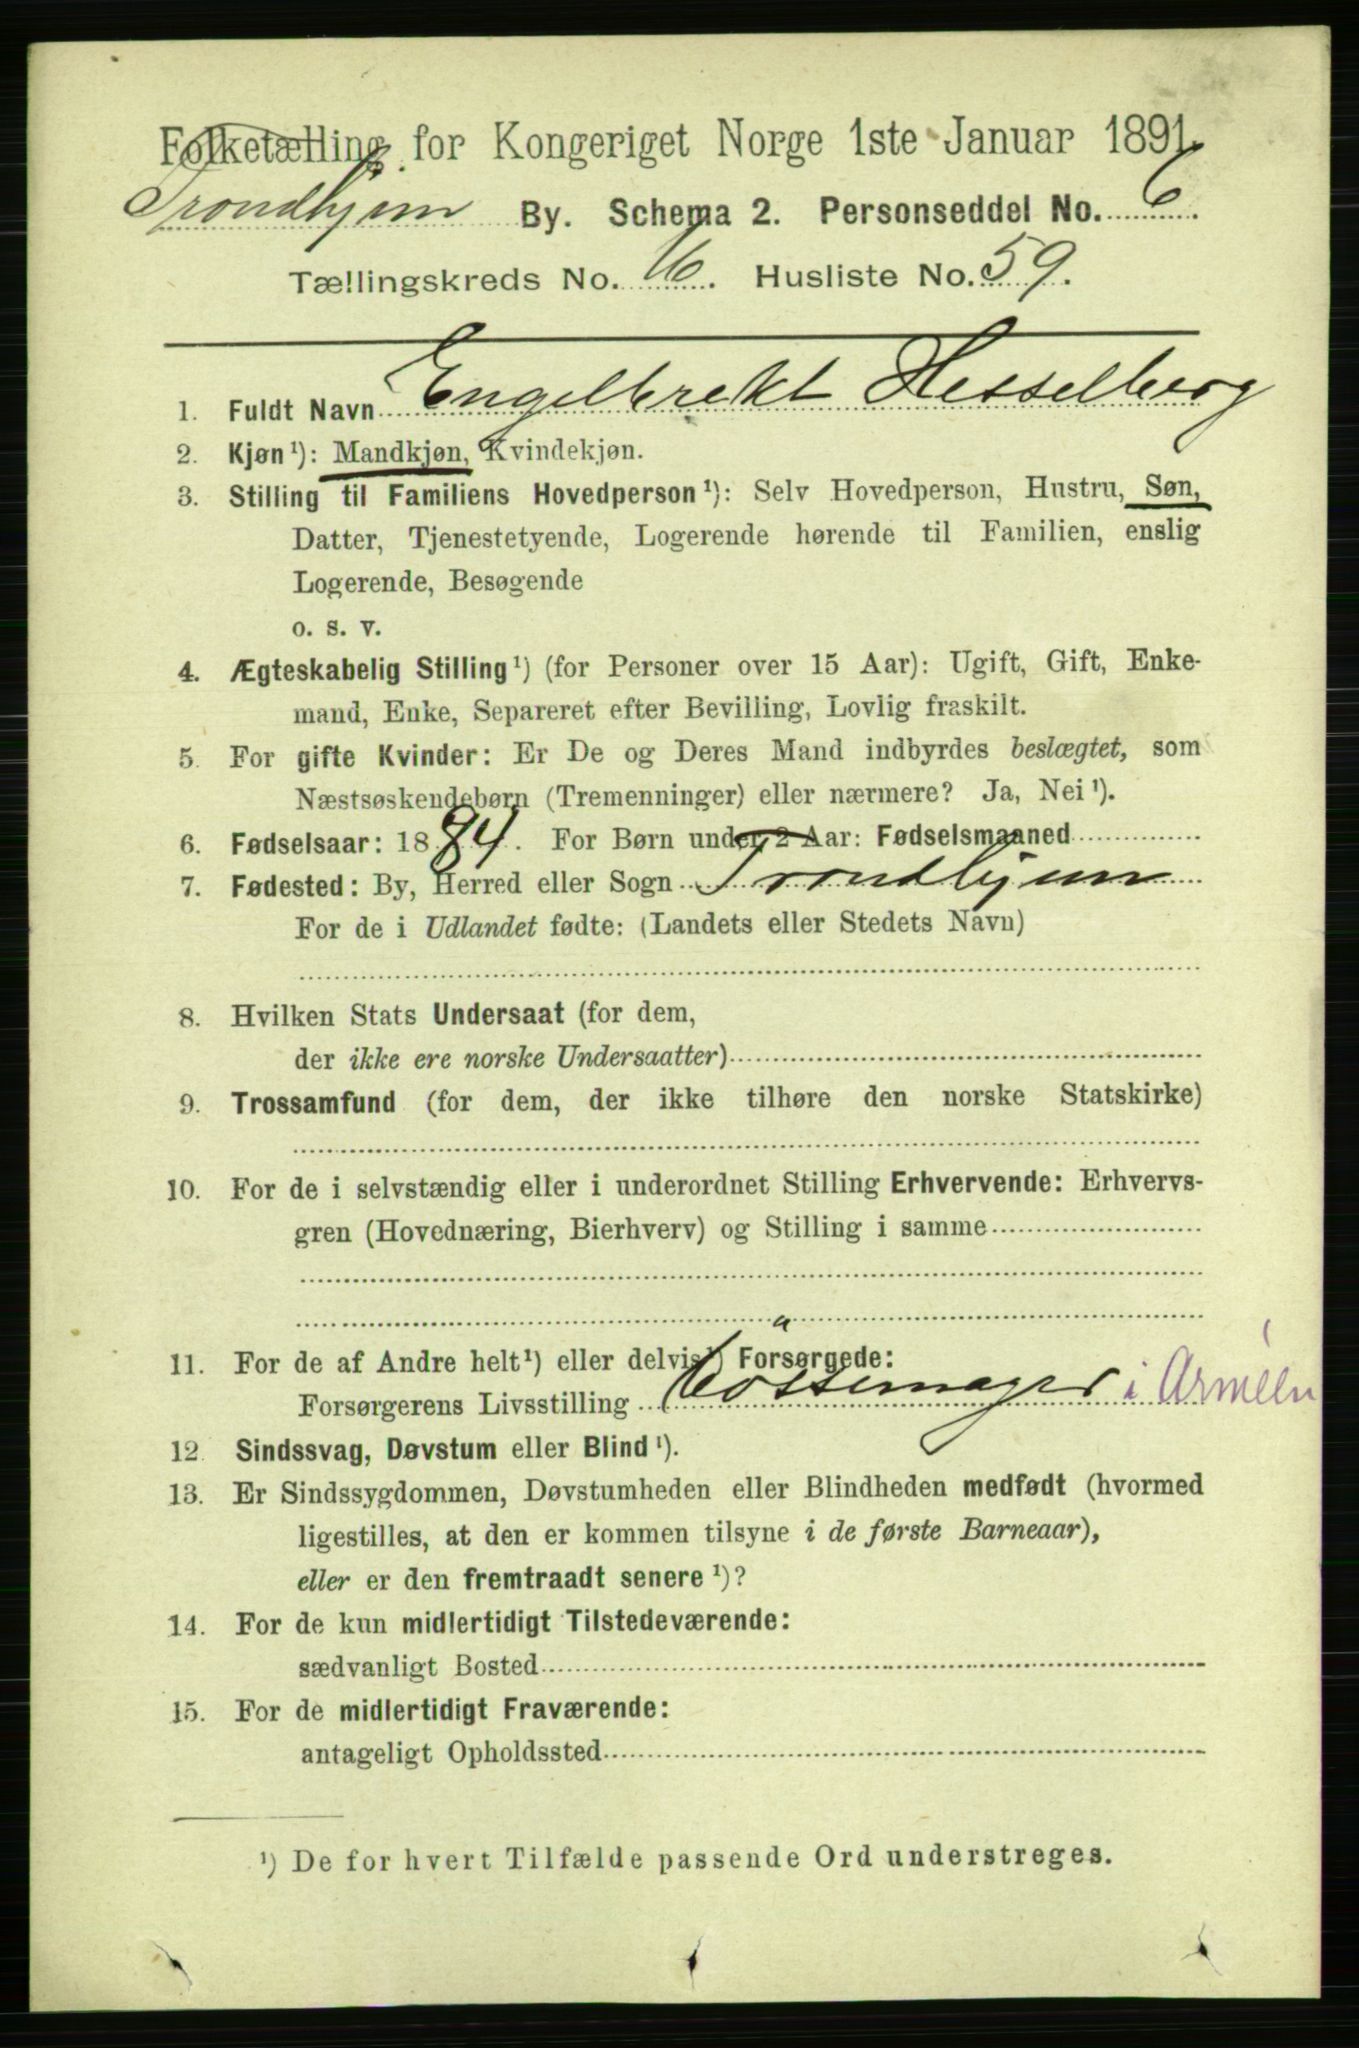 Folketælling for Kongeriget Norge 1ste Januar 1891.
Trondhjem By. Schema 2. Personseddel No. 6.
Tællingskreds No. 16. Husliste No. 59.
1. Fuldt Navn Engelbrekt Hesselberg
2. Kjøn¹): Mandkjøn, Kvindekjøn.
3. Stilling til Familiens Hovedperson¹): Selv Hovedperson, Hustru, Søn,
Datter, Tjenestetyende, Logerende hørende til Familien, enslig
Logerende, Besøgende
o. s. v.
4. Ægteskabelig Stilling¹) (for Personer over 15 Aar): Ugift, Gift, Enke-
mand, Enke, Separeret efter Bevilling, Lovlig fraskilt.
5. For gifte Kvinder: Er De og Deres Mand indbyrdes beslægtet, som
Næstsøskendebørn (Tremenninger) eller nærmere? Ja, Nei¹).
6. Fødselsaar: 1884. For Børn under 2 Aar: Fødselsmaaned
7. Fødested: By, Herred eller Sogn Trondhjem
For de i Udlandet fødte: (Landets eller Stedets Navn)
8. Hvilken Stats Undersaat (for dem,
der ikke ere norske Undersaatter)
9. Trossamfund (for dem, der ikke tilhøre den norske Statskirke)
10. For de i selvstændig eller i underordnet Stilling Erhvervende: Erhvervs-
gren (Hovednæring, Bierhverv) og Stilling i samme
a
11. For de af Andre helt¹) eller delvis¹) Forsørgede:
Forsørgerens Livsstilling i Armeen
12. Sindssvag, Døvstum eller Blind¹).
13. Er Sindssygdommen, Døvstumheden eller Blindheden medfødt (hvormed
ligestilles, at den er kommen tilsyne i de første Barneaar),
eller er den fremtraadt senere¹)?
14. For de kun midlertidigt Tilstedeværende:
sædvanligt Bosted
15. For de midlertidigt Fraværende:
antageligt Opholdssted
¹) De for hvert Tilfælde passende Ord understreges.